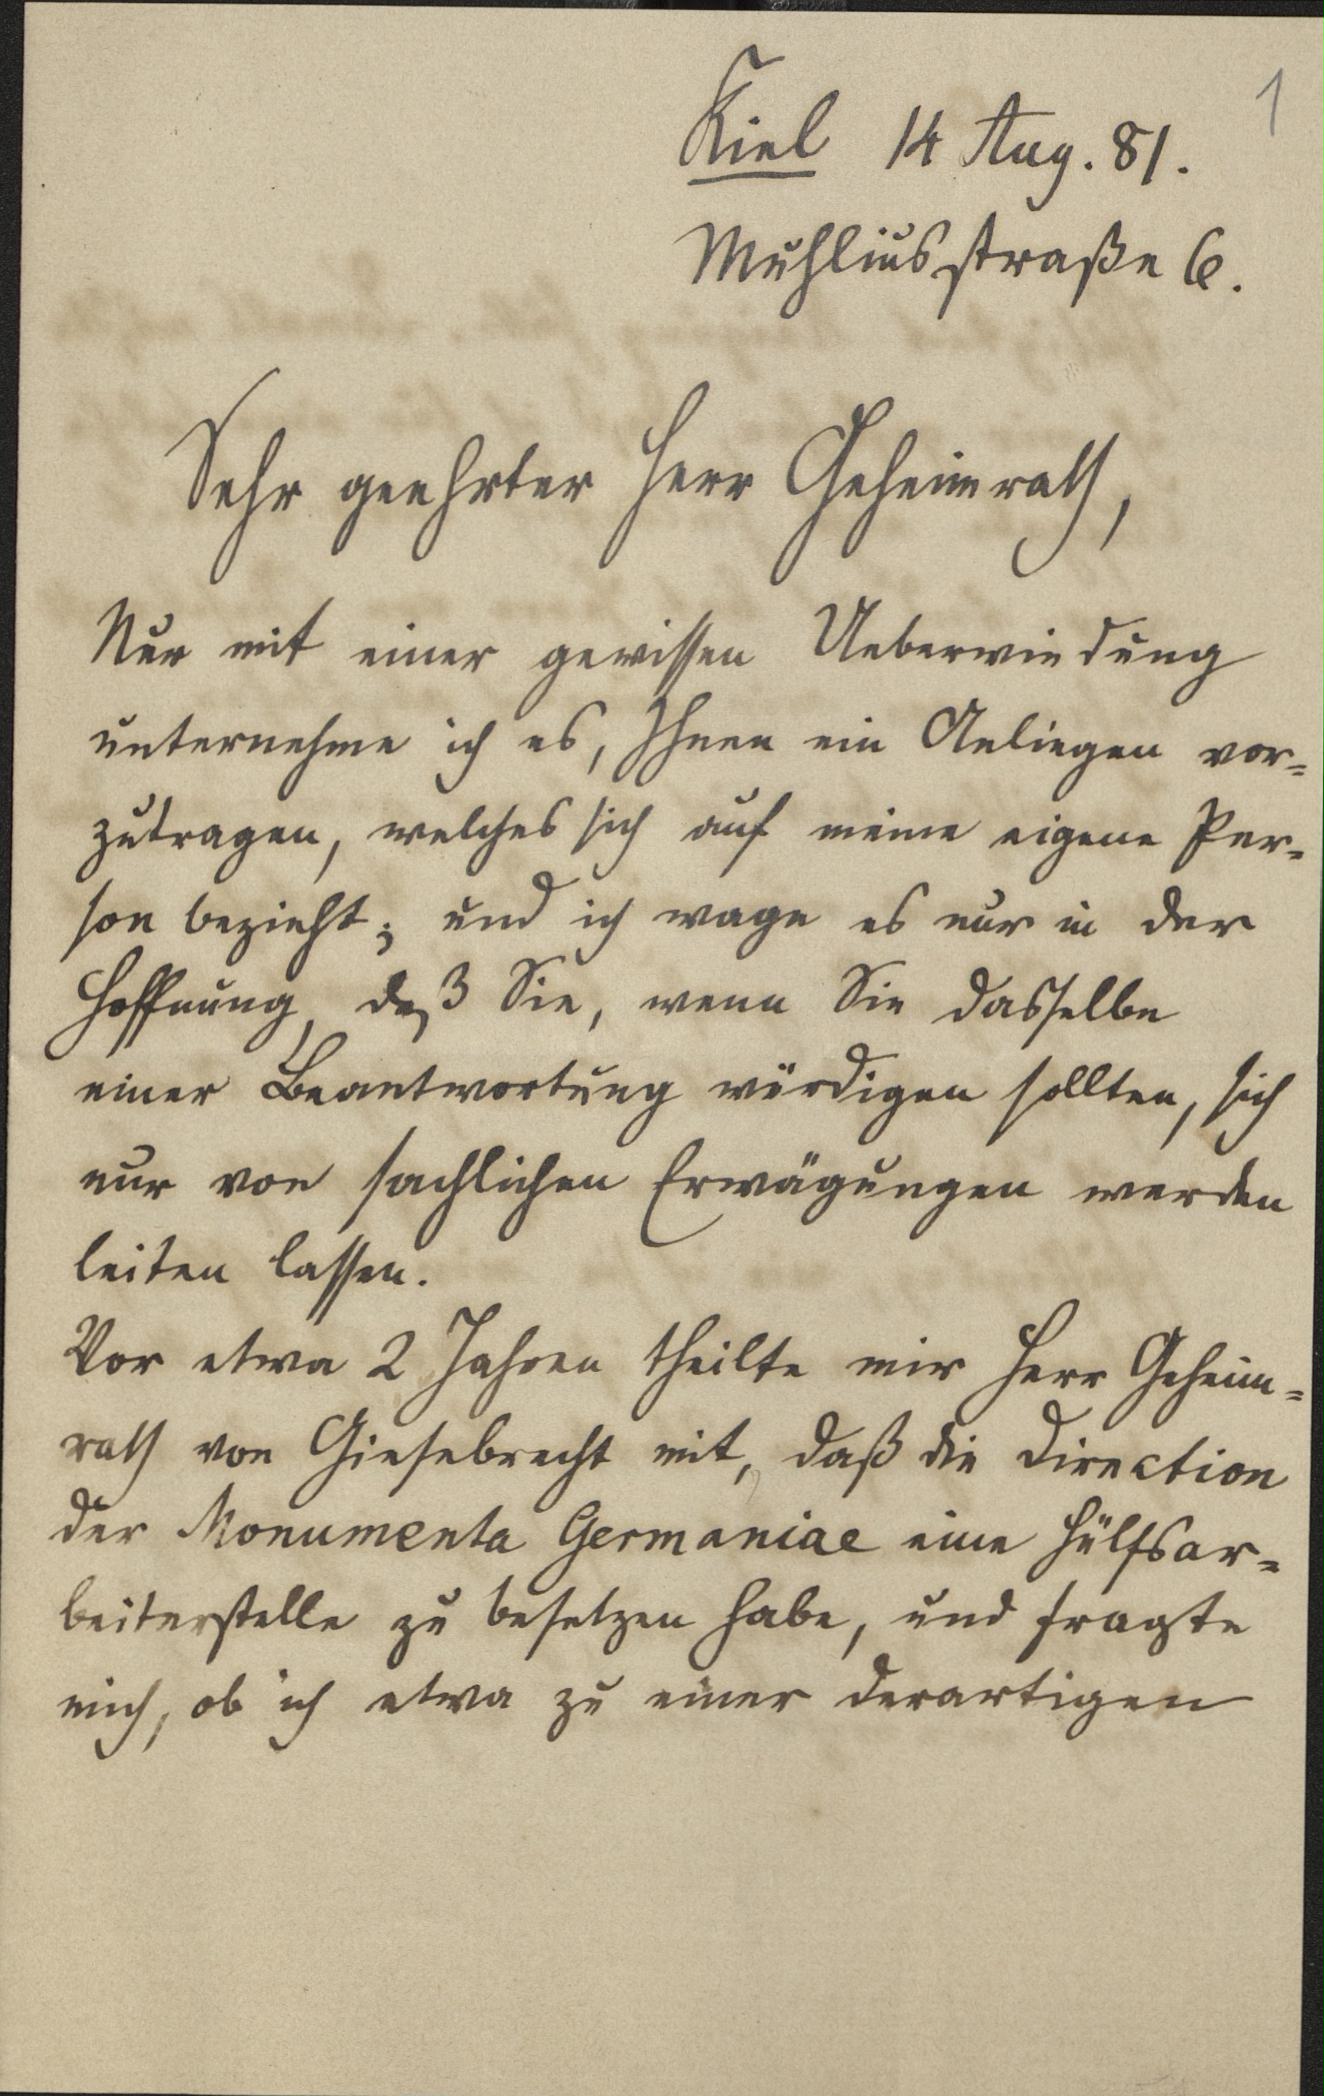 1
Kiel 14 Aug. 81.
Muhliusstraße 6.
Sehr geehrter Herr Geheimrath,
Nur mit einer gewissen Ueberwindung
unternehme ich es, Ihnen ein Anliegen vor-
zutragen, welches sich auf meine eigene Per-
son bezieht; und ich wage es nur in der
Hoffnung, daß Sie, wenn Sie dasselbe
einer Beantwortung würdigen sollten, sich
nur von sachlichen Erwägungen werden
leiten lassen.
Vor etwa 2 Jahren theilte mir Herr Geheim-
rath von Giesebrecht mit, daß die Direction
der Monumenta Germaniae eine Hülfsar-
beiterstelle zu besetzen habe, und fragte
mich, ob ich etwa zu einer derartigen